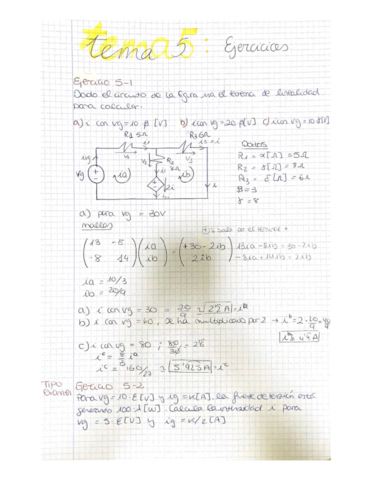 tema 5: Ejercicios
Ejercicio 5-1
Dado el circuito de la figra, usa el teorema de linealidad
para calcular:
a) i con vg=10 β [V] b) i con vg=20 β[V] c) i con vg=10 γ[V]
R1 5Ω R3 6Ω
i1 i2=i
Datos
R1 = α[Ω] = 5Ω
R2 = γ[Ω] = 8Ω
R3 = ε[Ω] = 6Ω
β=3
γ=8
ig R2 8Ω
vg ia 2i ib i
a) para vg = 30V
mallas
13 -8 ia +30-2ib 13ia-8ib=30-2ib
-8 14 ib 2ib -8ia+14ib=2ib
ia = 10/3
ib = 20/9
a) i con vg = 30 = 20/9 → 2'2 A = iᵃ
b) i con vg = 60, se ha multiplicado por 2 → iᵇ=2·20/9=40/9
iᵇ=4'4 A
c) i con vg = 80 ; 80/30 = 2'6
iᶜ = 8/3 iᵃ
iᶜ = 160/27 → 5'925 A = iᶜ
TIPO
EXAMEN
Ejercicio 5-2
Para vg=10·ε[V] y ig=α[A], la fuente de tensión está
generando 100·λ[W]. Calcula la intensidad i para
vg = 5·ε[V] y ig=α/2 [A]